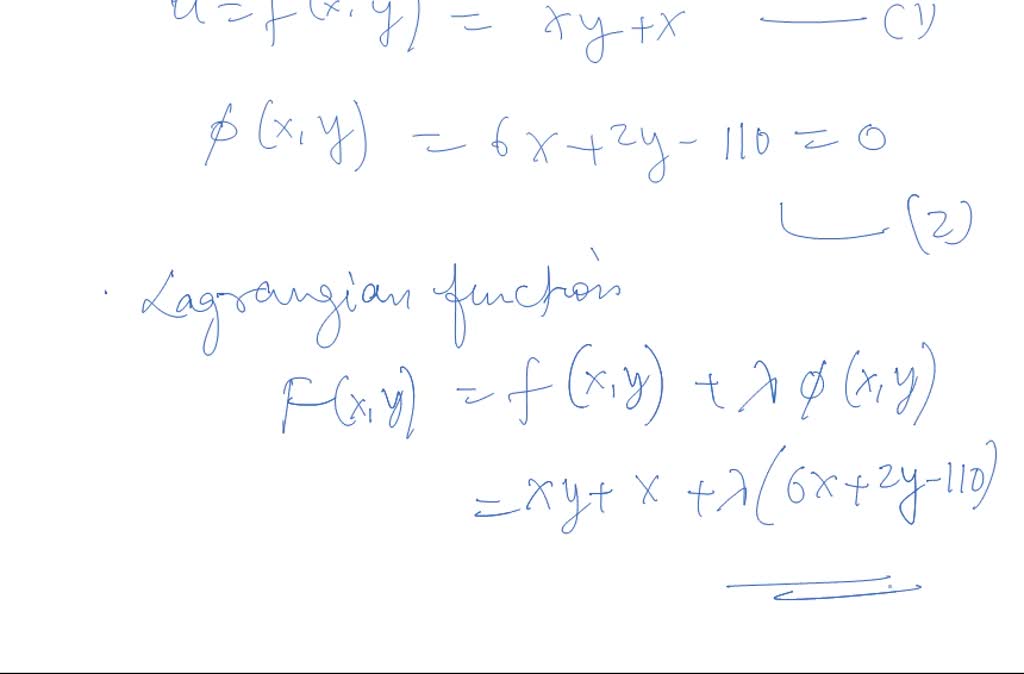 u = f(x, y) = xy + x —— (1)
φ(x, y) = 6x + 2y - 110 = 0
(2)
Lagrangian function
F(x, y) = f(x, y) + λ φ(x, y)
= xy + x + λ(6x + 2y - 110)